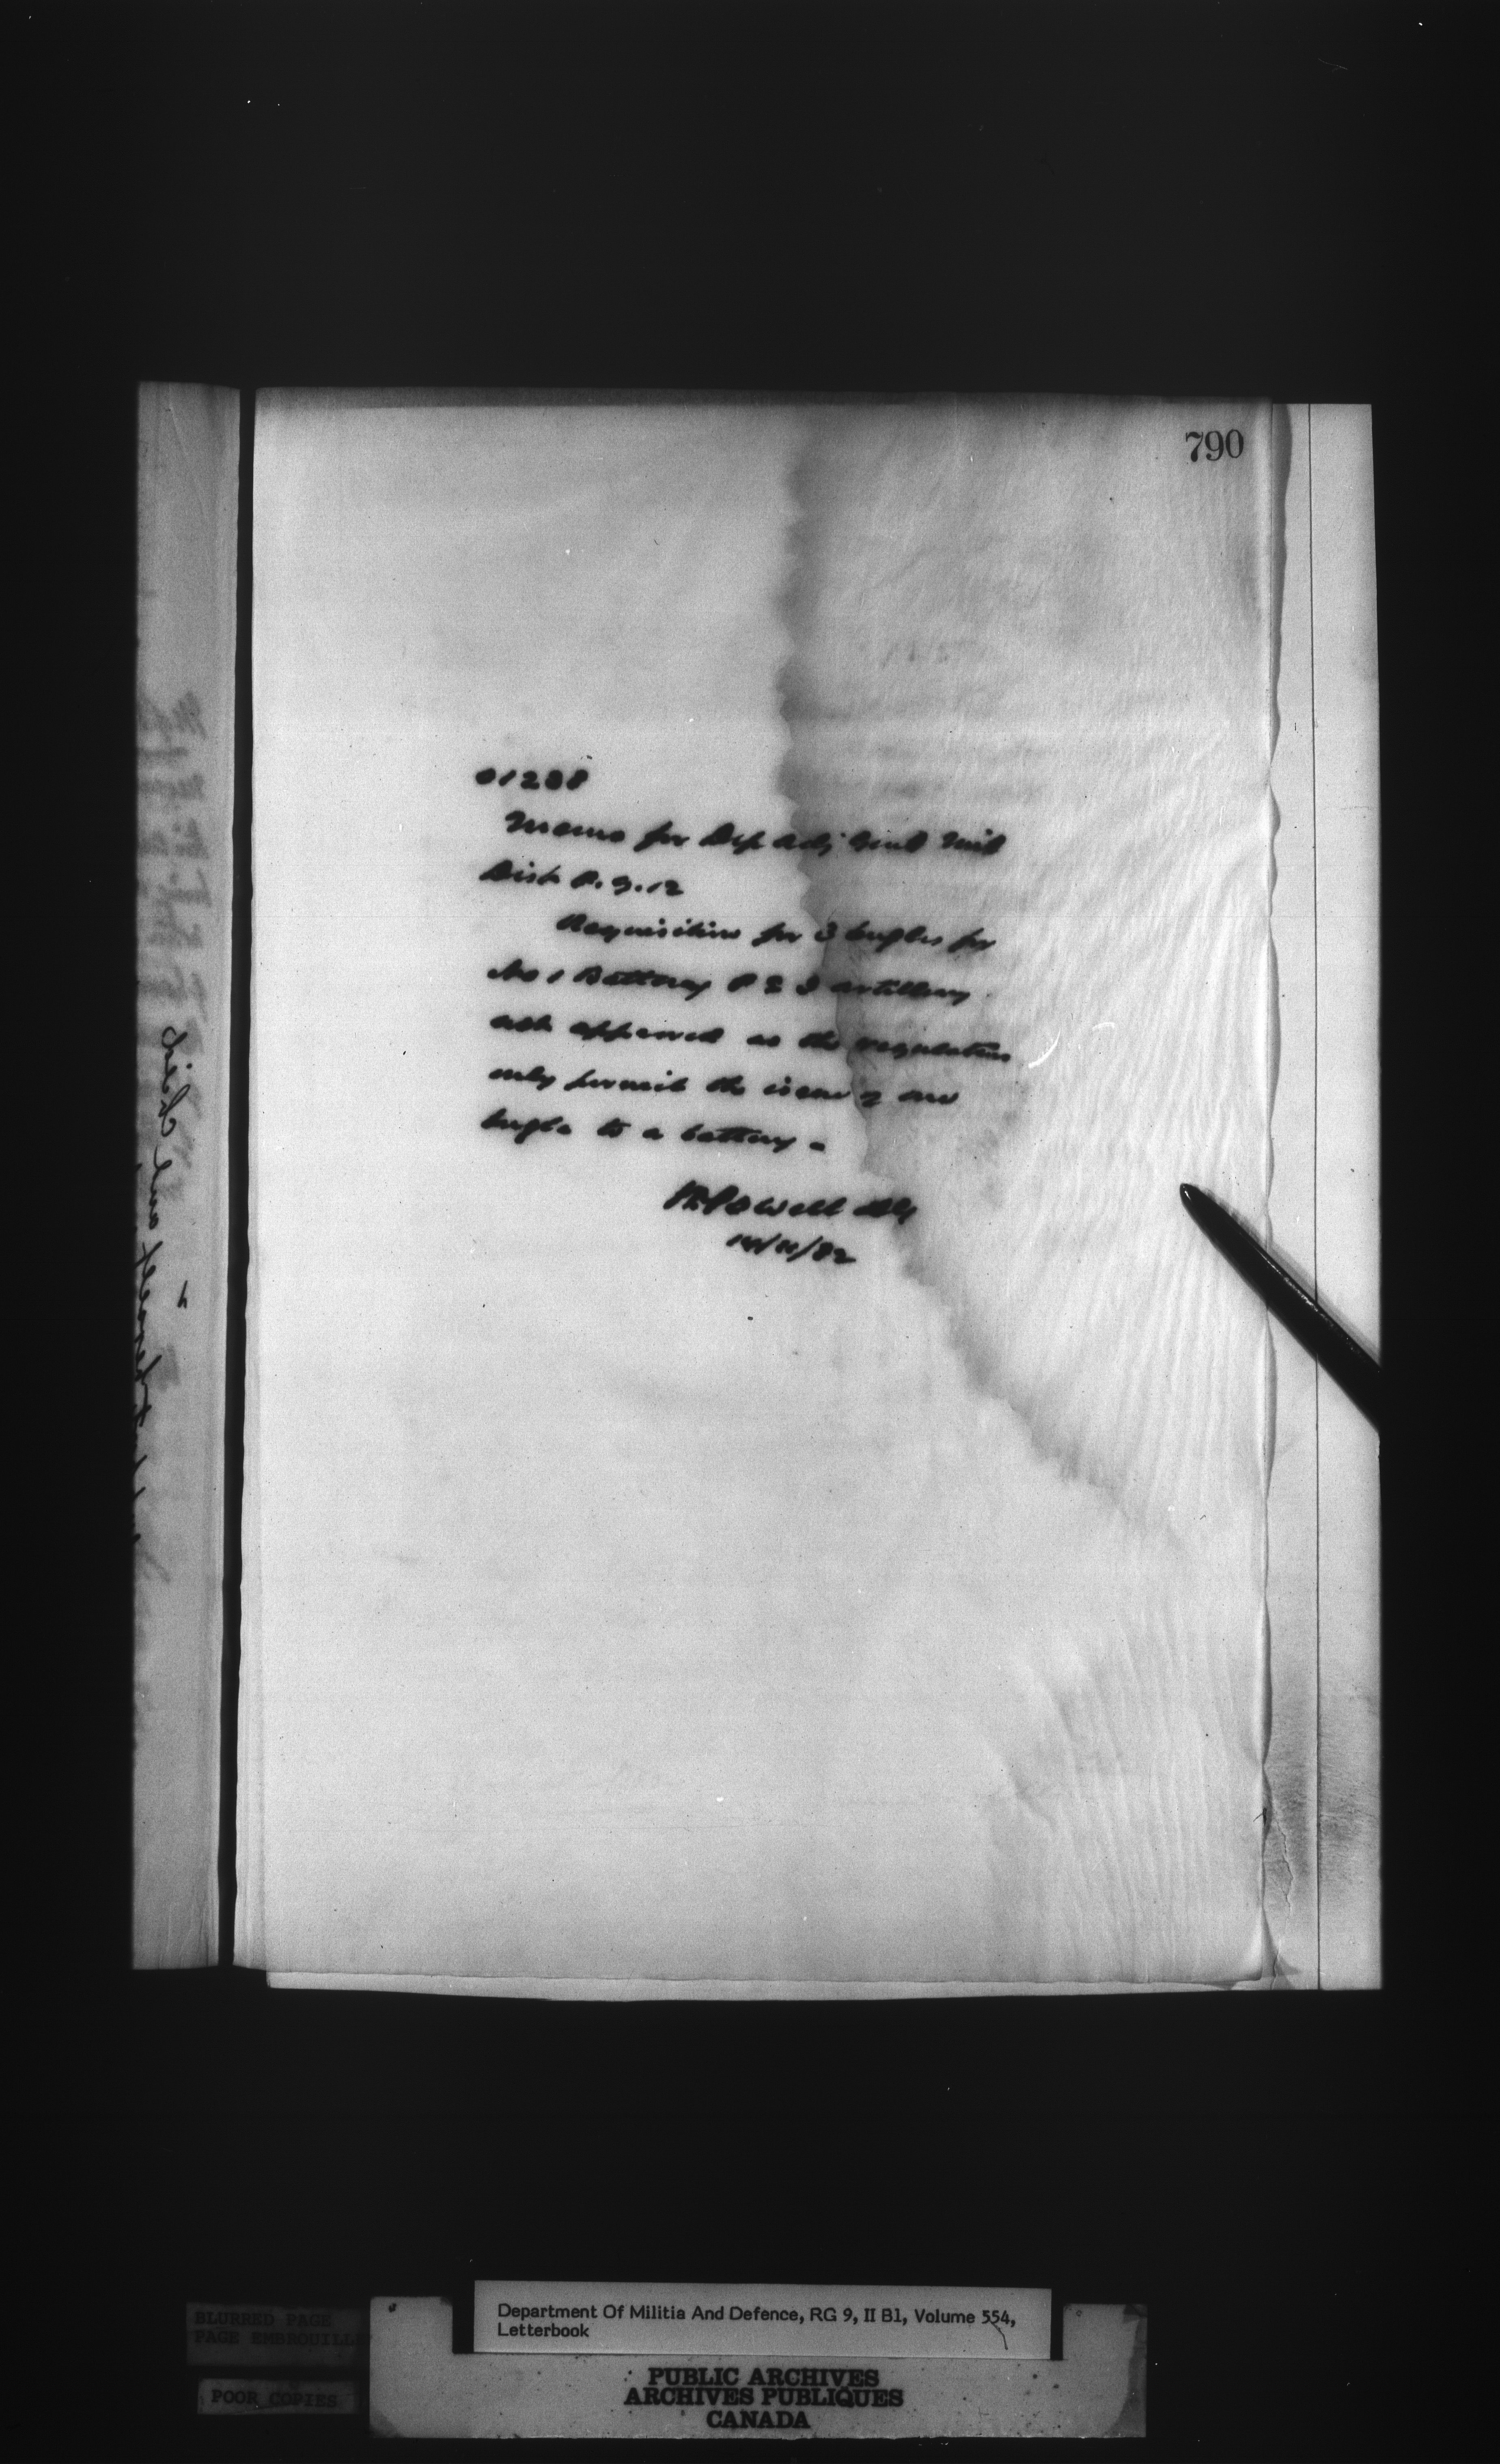 790
01288
Memo for Dep Adj Genl Mil
Dist No. 12
Requisition for 3 bugles for
No 1 Battery P E I Artillery
not approved as the regulations
only permit the issue of one
bugle to a battery -
W Powell AG
14/11/82
and chief
Department Of Militia And Defence, RG 9, II B1, Volume 554,
Letterbook
BLURRED PAGE
PAGE EMBROUILLE
POOR COPIES
PUBLIC ARCHIVES
ARCHIVES PUBLIQUES
CANADA